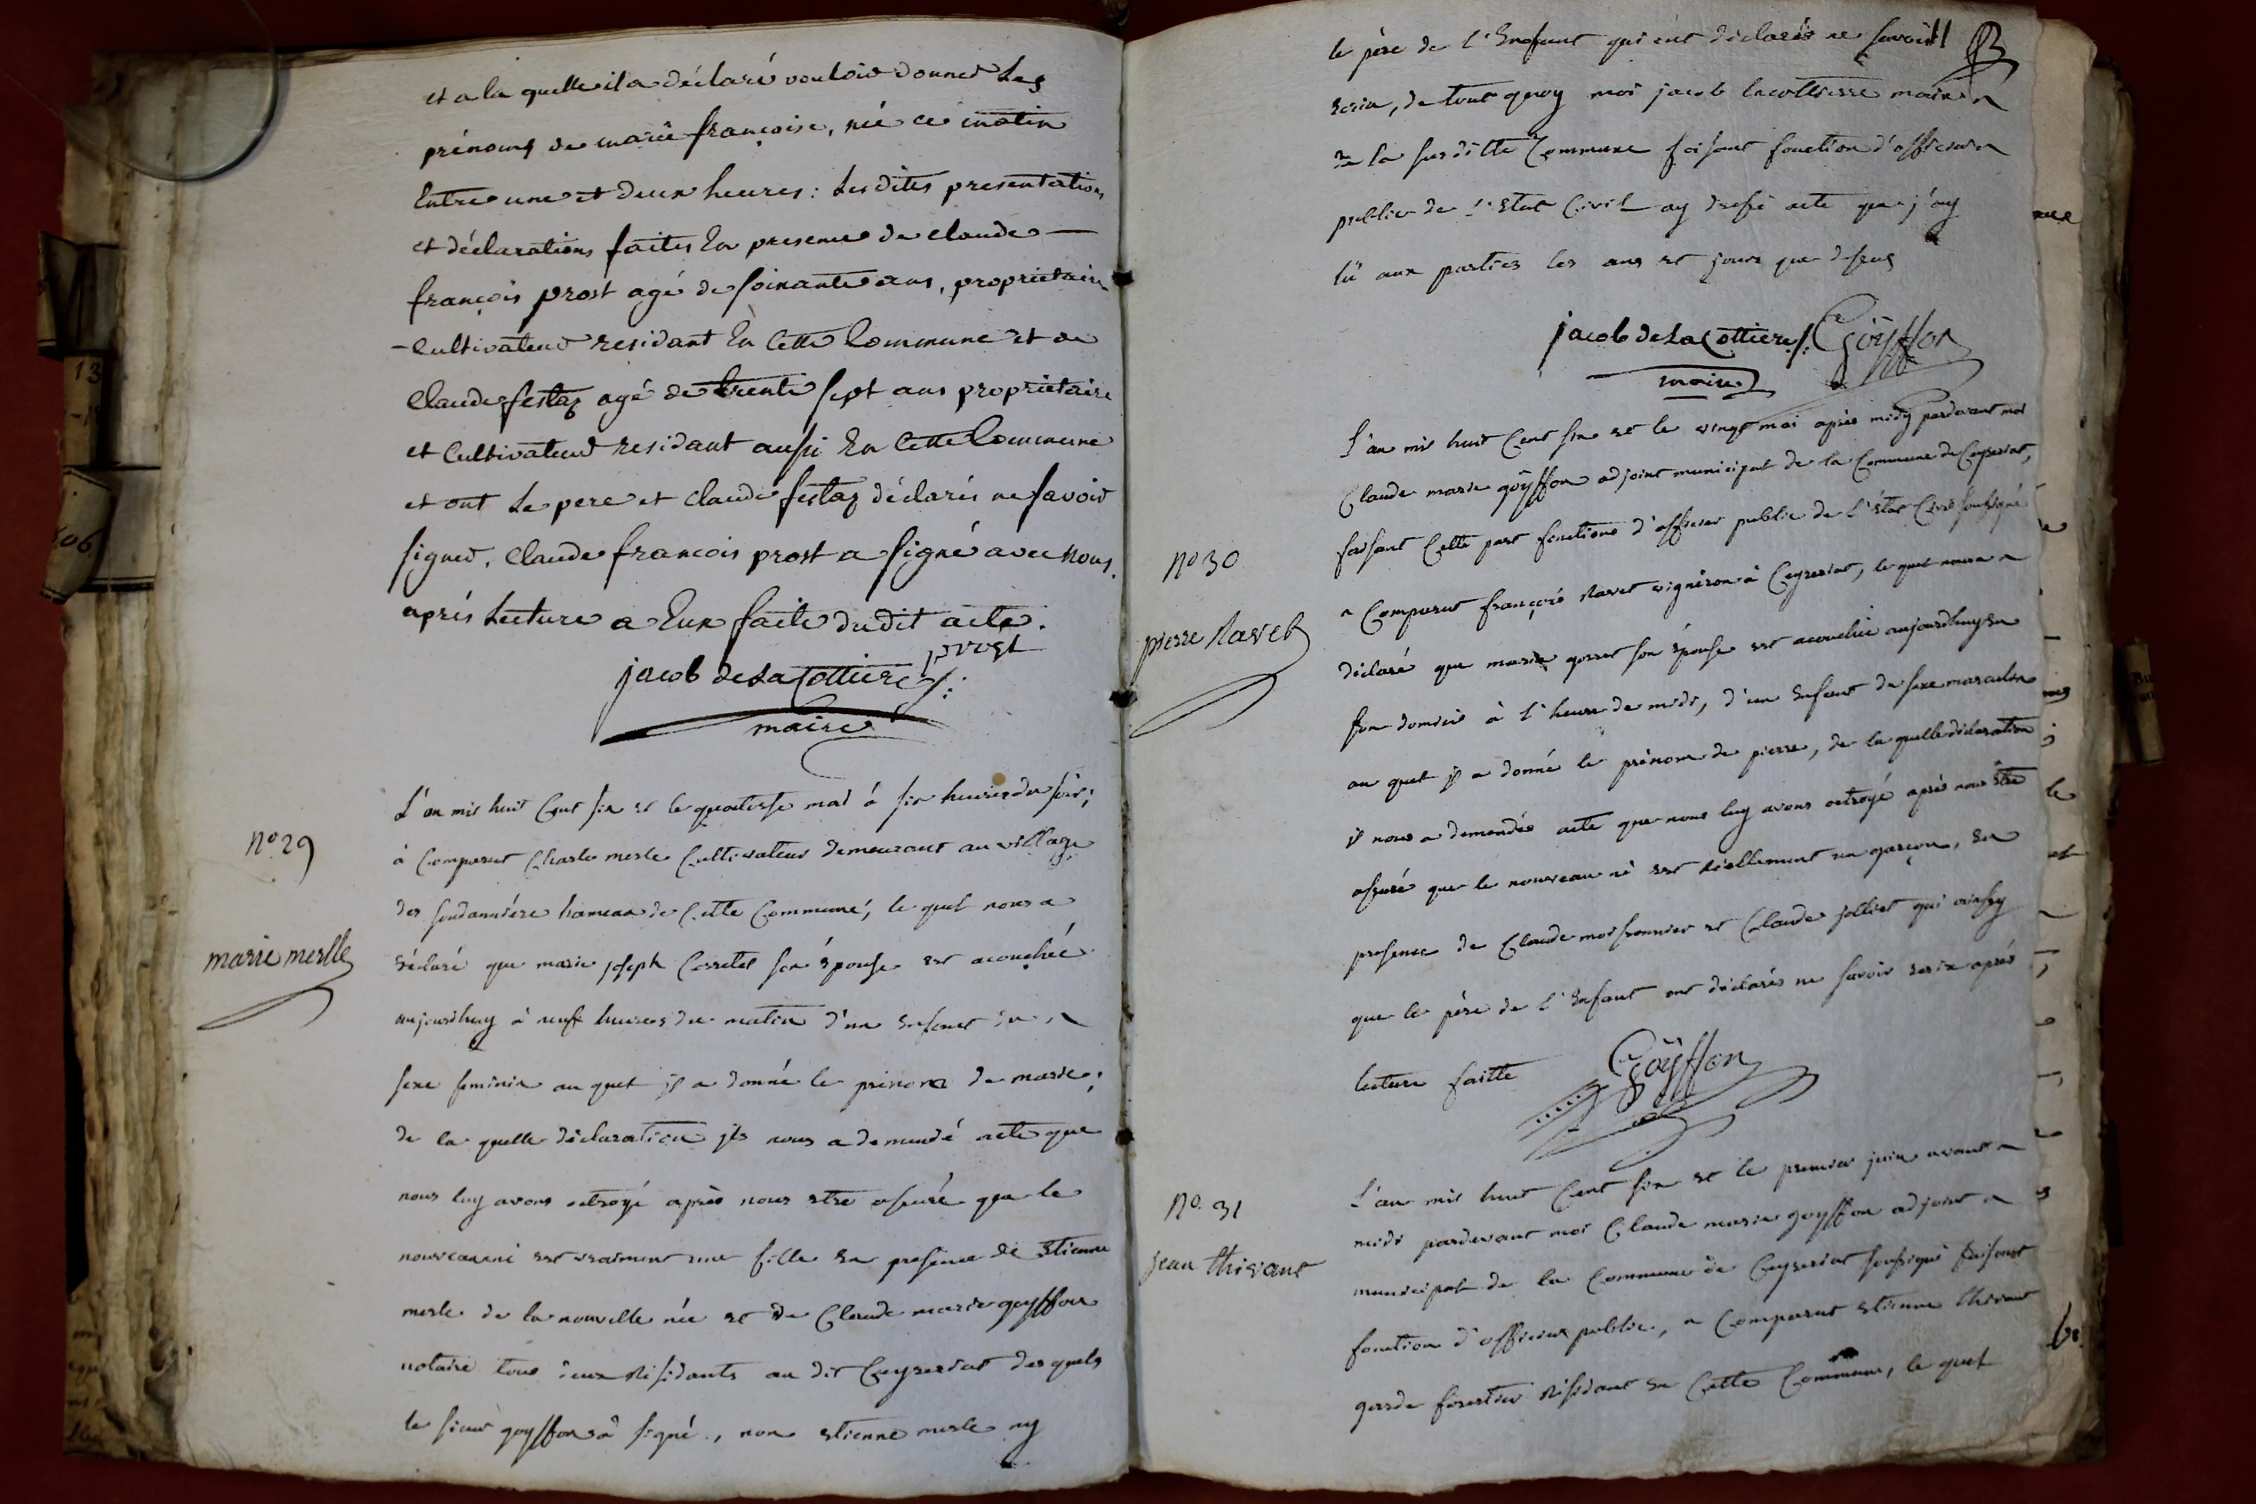 et a la quelle il a déclaré vouloir donner Les
prénoms de marie françoise, née ce matin
Entre une et deux heures: Les dites presentations
et déclarations faites En presence de claude
françois prost agé de soixante ans, proprietaire
Cultivateur residant En Cette Commune et de
Claude festaz agé de trente sept ans proprietaire
et Cultivateur residant aussi En Cette Commune
et ont Le pere et claude festaz déclarés ne savoir
signer. Claude francois prost a signé avec nous.
après Lecture a Eux faite du dit acte.
prost
jacob de La Cottiere
maire
No 29
marie merlle
L'an mil huit Cent six et le quatorse mai à six heures du soir,
à Comparut Charle merle Cultivateur demeurant au village
des soudannière hameau de Cette Commune, le quel nous a
déclaré que marie joseph son épouse est acouchée
aujourdhuy à neuf heures du matin d'un Enfant du
sexe feminin au quel il a donné le prénom de marie,
de la quelle déclaration il nous a demandé acte que
nous luy avons octroyé après nous etre assuré que le
nouveau né est vraiment une fille en presence de Etienne
merle de la nouvelle née et de Claude marie goyffon
notaire tous deux Residants au dit Ceyzeriat des quels
le sieur goyffon à signé, non etienne merle ny
le père de l'Enfant qui ont déclarés ne savoir
Ecrire, de tout quoy moi jacob lacottierre maire
de la susditte Commune faisant fonction d'officier
public de l'Etat Civil ay dressé acte que j'ay
lü aux parties les ans et jours que dessus
jacob de La Cottiere Goÿffon
maire
No 30
pierre Ravet
L'an mil huit Cent six et le vingt mai après midy pardevant moi
Claude marie goÿffon adjoint municipal de la Commune de Ceyzeriat,
faisant Cette part fonctions d'officier public de l'état Civil soussigné
a Comparut françois Ravet vigneron à Ceyzeriat, le quel nous a
déclaré que marie gorret son épouse est acouchée aujourdhuy en
son domicile à l'heure de midi, d'un Enfant du sexe masculin
au quel il a donné le prénom de pierre, de la quelle déclaration
il nous a demandée acte que nous luy avons octroyé après nous être
assuré que le nouveau né est Réellement un garçon, En
presence de Claude moissonnier et Claude jolliet qui ainsy
que le père de l'Enfant ont déclarés ne savoir ecrire après
lecture faitte
Goÿffon
No. 31
jean thivant
L'an mil huit Cent six et le premier juin avant
midi pardevant moi Claude marie goyffon adjoint
municipal de la Commune de Ceyzeriat soussigné faisant
fonction d'officier public, a Comparut etienne thivant
garde forestier Résidant en Cette Commune, le quel